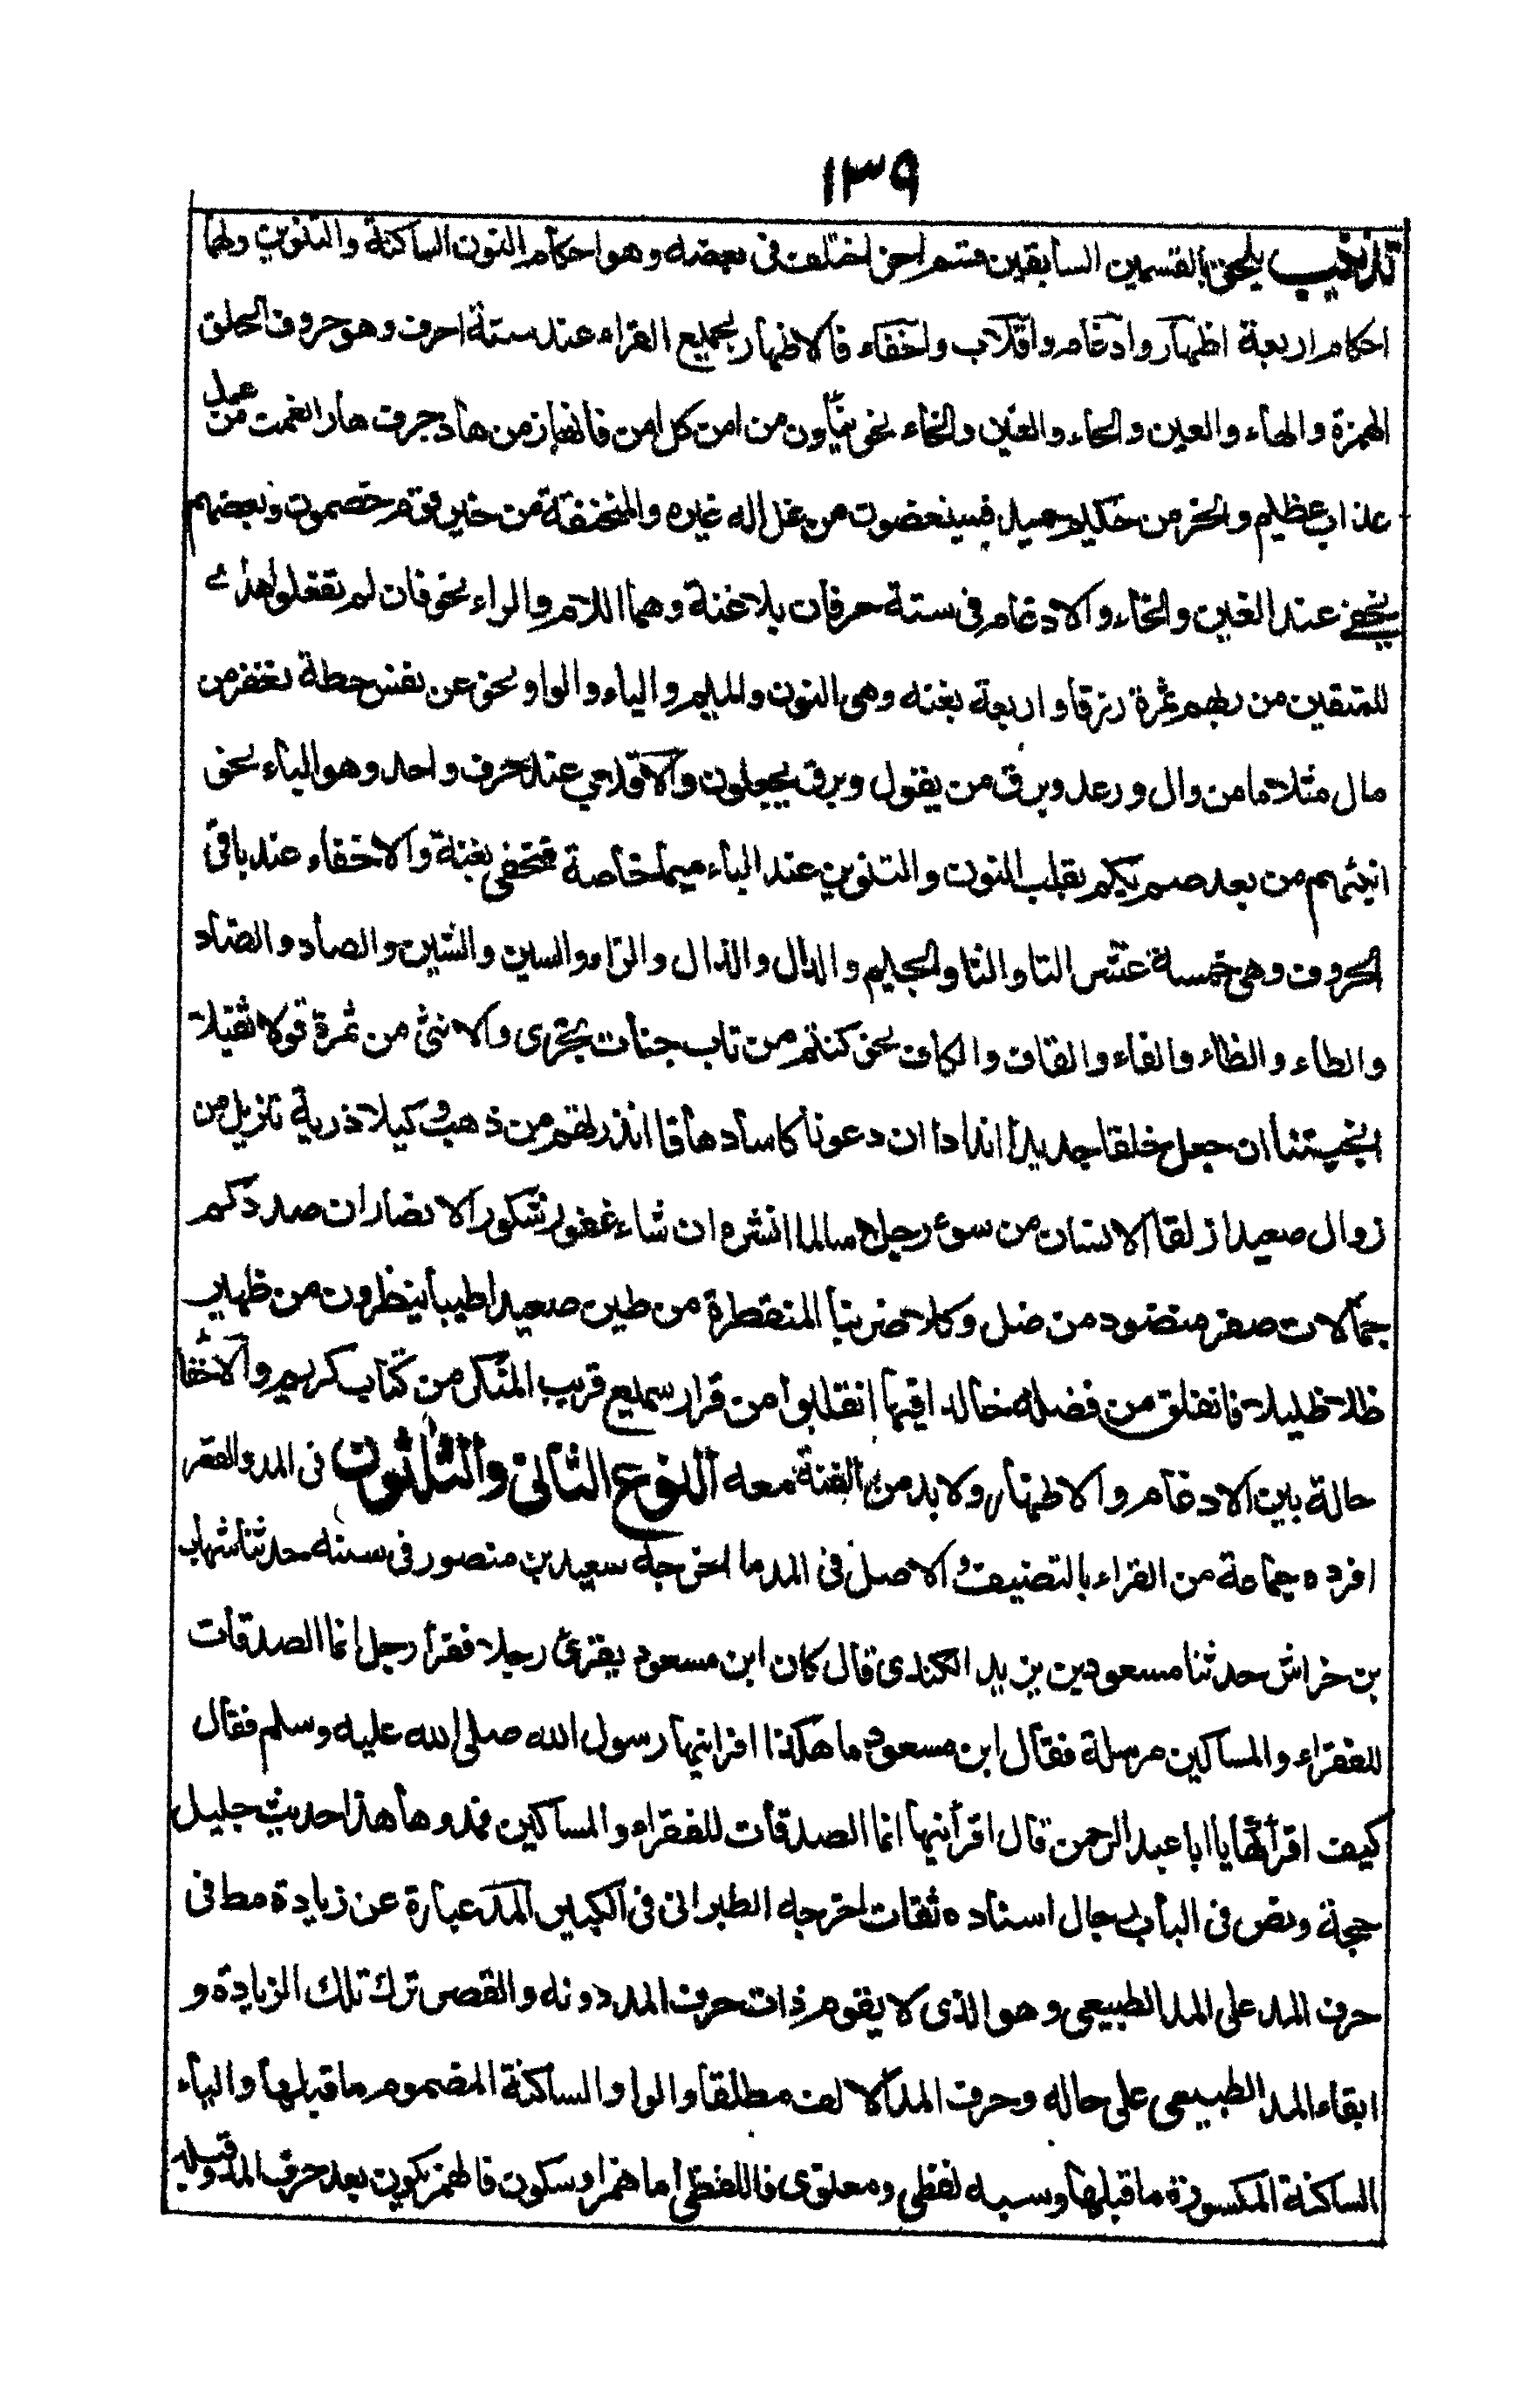 ١٣٩
تذنيب يلحق بالقسمين السابقين قسم اخر اختلف فى بعضه وهو احكام النون الساكنة والتنوين ولهما
احكام اربعة اظهار وادغام واقلاب واخفاء فالاظهار لجميع القراء عند ستة احرف وهو حروف الحلق
الهمزة والهاء والعين والحاء والغين والخاء نحو ينأون من امن كل امن فانهار من هاد جرف هار انعمت من عمل
عذاب عظيم والنحر من حكيم حميد فسينغضون من غل اله غيره والمنخنقة من خير قوم خصمون وبعضهم
يخفى عند الغين والخاء والادغام فى ستة حرفان بلا غنة وهما اللام والراء نحو فان لم تفعلوا هدى
للمتقين من ربهم ثمرة رزقا واربعة بغنه وهى النون والميم والياء والواو نحو عن نفس حطة نغفر من
مال مثلا ما من وال ورعد وبرق من يقول وبرق يجعلون والاقلاب عند حرف واحد وهو الباء نحو
انبئهم من بعد صم بكم بقلب النون والتنوين عند الباء ميما خاصة فتخفى بغنة والاخفاء عند باقى
الحروف وهى خمسة عشر التا والثا والجيم والدال والذال والزاء والسين والشين والصاد والضاد
والطاء والظاء والفاء والقاف والكاف نحو كنتم من تاب جنات تجرى والانثى من ثمرة قولا ثقيلا
انجيتنا ان جعل خلقا جديدا اندادا ان دعونا كاسا دهاقا انذرتهم من ذهب وكيلا ذرية تنزيل من
زوال صعيدا زلقا الانسان من سوء رجلا سالما انشره ان شاء غفور شكور الانصار ان صدوكم
جمالات صفر منضود من ضل وكلا ضربنا المنقطرة من طين صعيدا طيبا ينظرون من ظهير
ظلا ظليلا فانفلق من فضله خالدا فيها انقلبوا من قرار سميع قريب المنكر من كتاب كريم والاخفا
حالة بين الادغام والاظهار ولا بد من الغنة معه النوع الثانى والثلثون فى المد والقصر
افرده جماعة من القراء بالتصنيف والاصل فى المد ما اخرجه سعيد بن منصور فى سننه حدثنا شهاب
بن خراش حدثنا مسعود بن يزيد الكندى قال كان ابن مسعود يقرئ رجلا فقرأ رجل انما الصدقات
للفقراء والمساكين مرسلة فقال ابن مسعود ما هكذا اقرانيها رسول الله صلى الله عليه وسلم فقال
كيف اقرأكها يا ابا عبد الرحمن قال اقرأنيها انما الصدقات للفقراء والمساكين فمدوها هذا حديث جليل
حجة ونص فى الباب رجال اسناده ثقات اخرجه الطبرانى فى الكبير المد عبارة عن زيادة مط فى
حرف المد على المد الطبيعى وهو الذى لا يقوم ذات حرف المد دونه والقصر ترك تلك الزيادة و
ابقاء المد الطبيعى على حاله وحرف المد الالف مطلقا والواو الساكنة المضموم ما قبلها والياء
الساكنة المكسورة ما قبلها وسببه لفظى ومعنوى فاللفظى اما همز او سكون فالهمز يكون بعد حرف المد وقبله